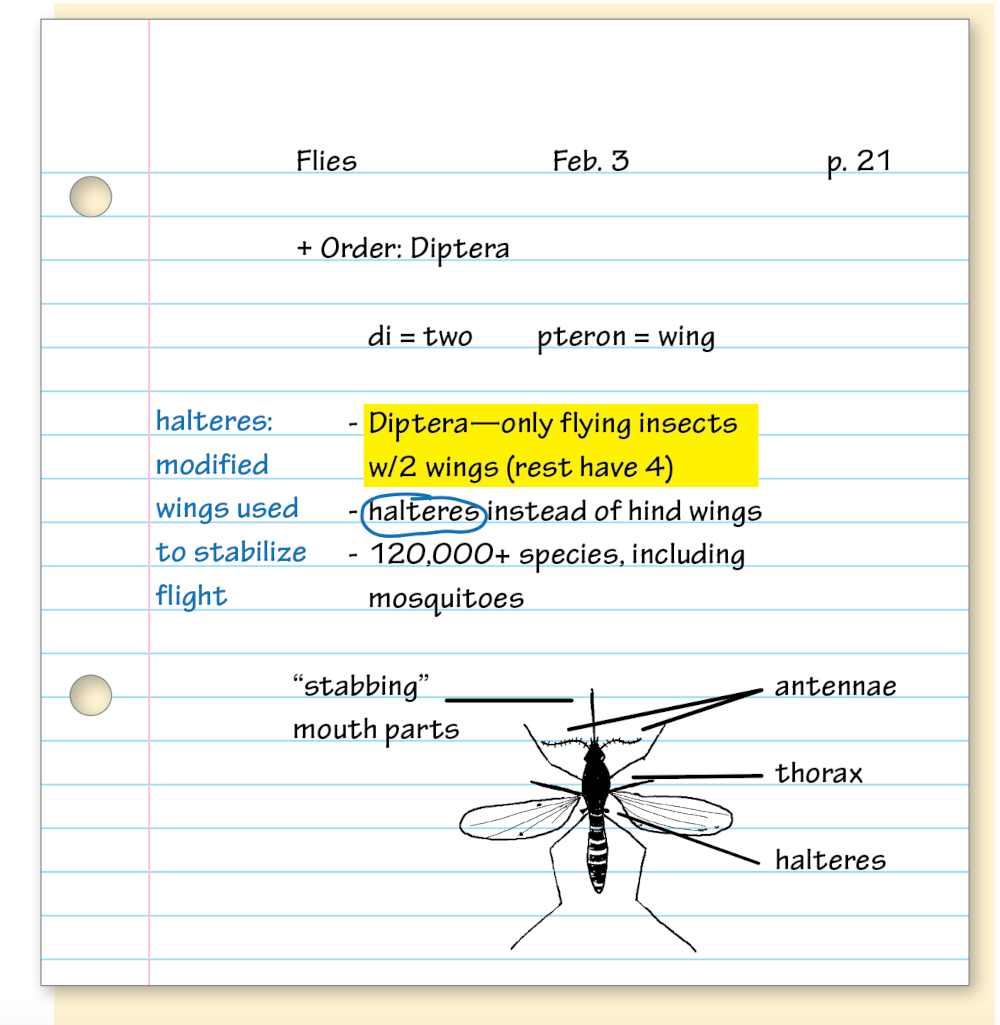 Flies Feb. 3 p. 21
+ Order: Diptera
di = two pteron = wing
halteres:
modified
wings used
to stabilize
flight
- Diptera—only flying insects
w/2 wings (rest have 4)
- halteres instead of hind wings
- 120,000+ species, including
mosquitoes
“stabbing”
mouth parts
antennae
thorax
halteres